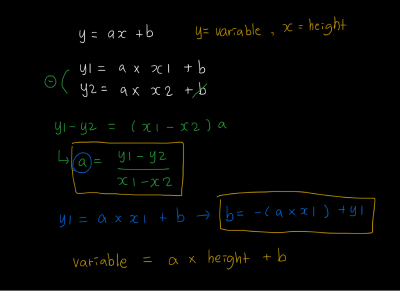 y = ax + b
y = variable , x = height
y1 = a x x1 + b
⊖ (
y2 = a x x2 + b
y1-y2 = (x1-x2) a
↳ a = y1-y2
x1-x2
y1 = a x x1 + b → b = -(a x x1) + y1
variable = a x height + b